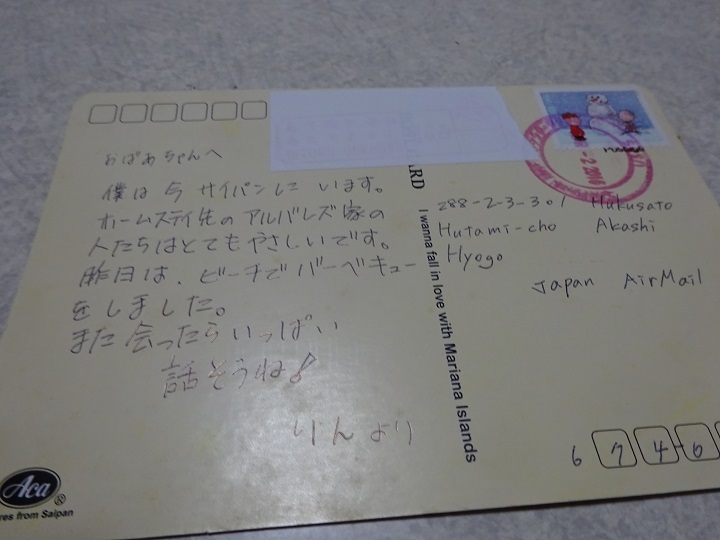 おばあちゃんへ
僕は今サイパンにいます。
ホームステイ先のアルバレズ家の
人たちはとてもやさしいです。
昨日は、ビーチでバーベキュー
をしました。
また会ったらいっぱい
話そうね!
りんより
ARD
I wanna fall in love with Mariana Islands
288-2-3-301 Hukusato
Hutami-cho Akashi
Hyogo
Japan AirMail
6 7 4-0
Aca®
res from Saipan